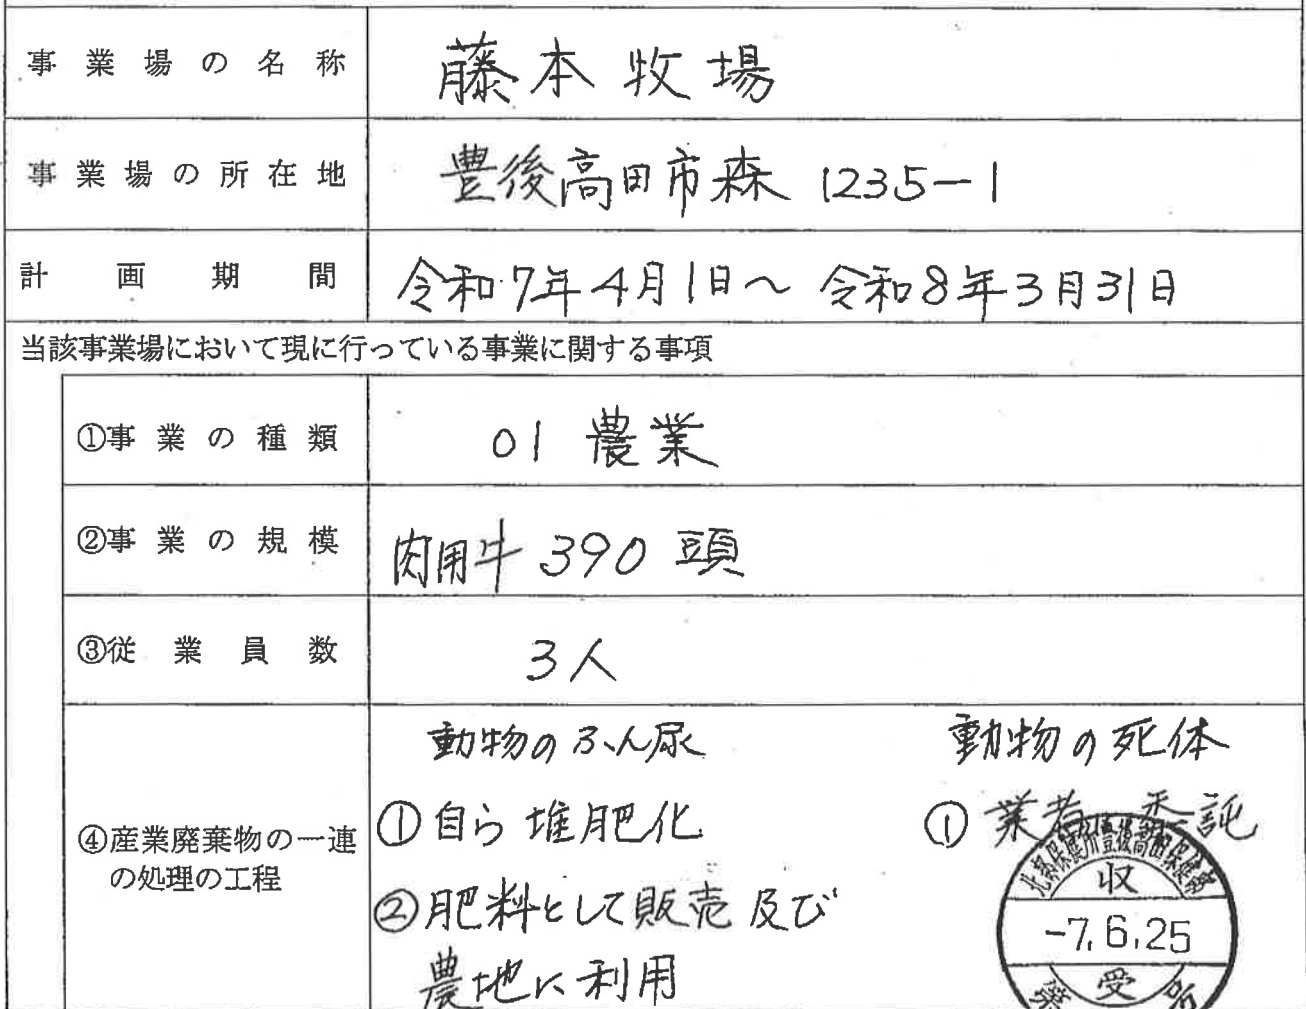 事業場の名称 藤本牧場
事業場の所在地 豊後高田市森 1235-1
計画期間 令和7年4月1日~令和8年3月31日
当該事業場において現に行っている事業に関する事項
①事業の種類 01 農業
②事業の規模 肉用牛 390 頭
③従業員数 3人
④産業廃棄物の一連
の処理の工程
動物のふん尿
①自ら堆肥化
②肥料として販売及び
農地に利用
動物の死体
①業者 委託
北部保健所豊後高田保健部
収
-7.6.25
受